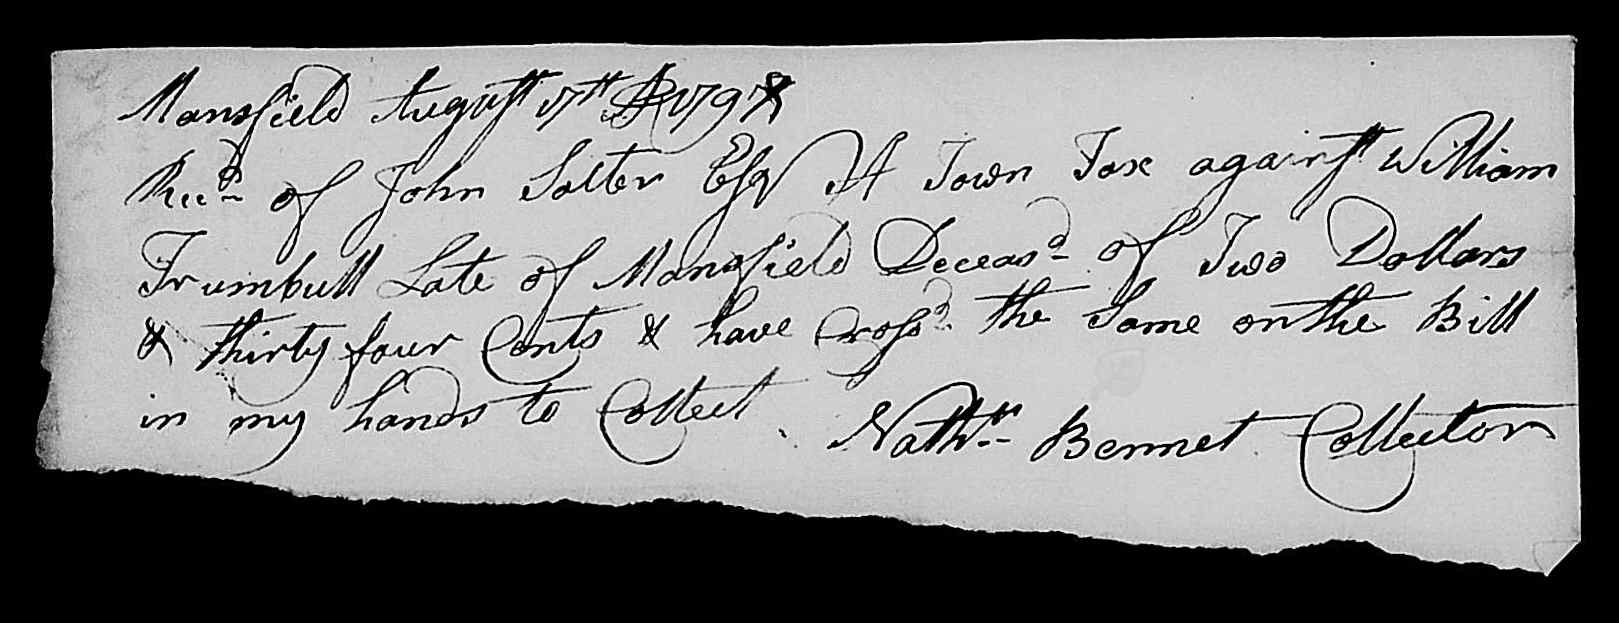 Mansfield August 17th AD 1797
Recd of John Salter Esqr A Town Tax against William
Trumbull Late of Mansfield Deceasd of Two Dollars
& thirty four Cents & have Crossd the Same on the Bill
in my hands to Collect
Nathn Bennet Collector